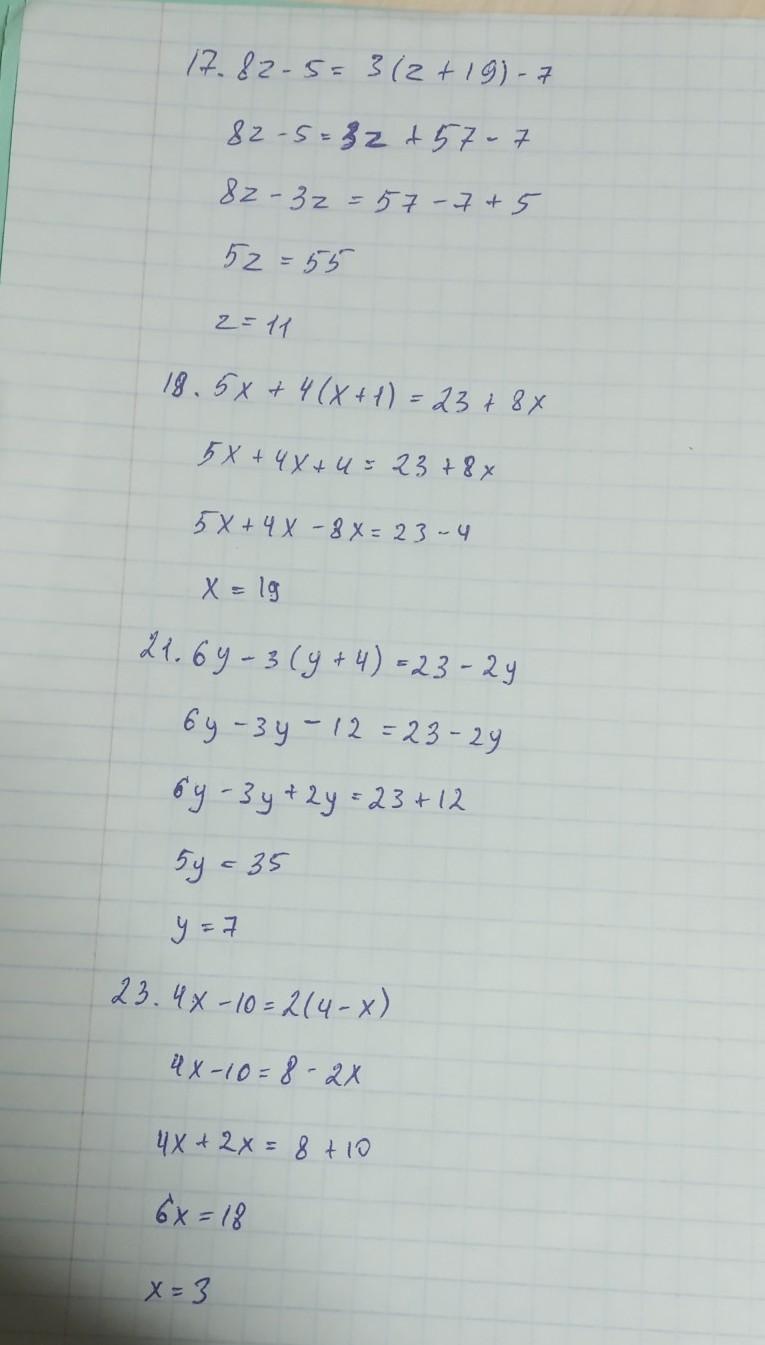 17. 8z - 5 = 3(z + 19) - 7
8z - 5 = 3z + 57 - 7
8z - 3z = 57 - 7 + 5
5z = 55
z = 11
18. 5x + 4(x + 1) = 23 + 8x
5x + 4x + 4 = 23 + 8x
5x + 4x - 8x = 23 - 4
x = 19
21. 6y - 3(y + 4) = 23 - 2y
6y - 3y - 12 = 23 - 2y
6y - 3y + 2y = 23 + 12
5y = 35
y = 7
23. 4x - 10 = 2(4 - x)
4x - 10 = 8 - 2x
4x + 2x = 8 + 10
6x = 18
x = 3